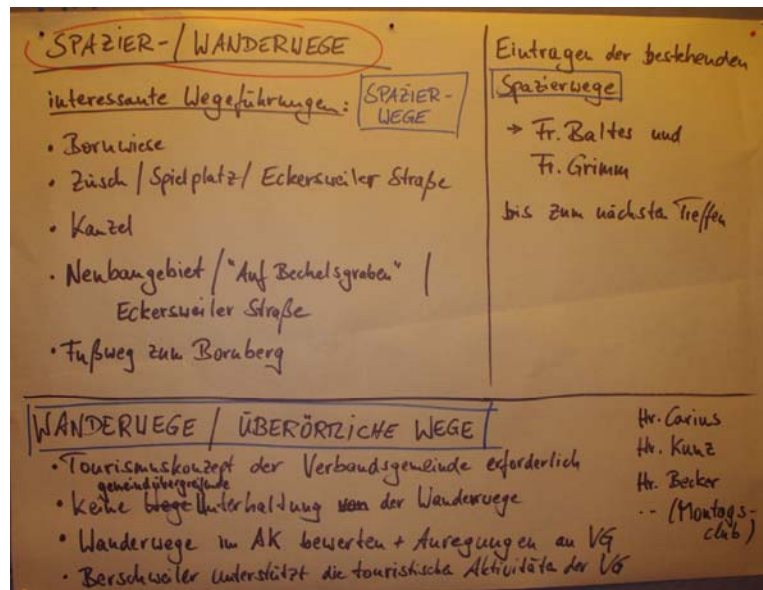 SPAZIER-/WANDERWEGE
interessante Wegeführungen:
SPAZIER-
WEGE
• Bornwiese
• Züsch / Spielplatz / Eckersweiler Straße
• Kanzel
• Neubaugebiet / "Auf Bechelsgraben" /
Eckersweiler Straße
• Fußweg zum Bornberg
Eintragen der bestehenden
Spazierwege
→ Fr. Baltes und
Fr. Grimm
bis zum nächsten Treffen
WANDERWEGE / ÜBERÖRTLICHE WEGE
• Tourismuskonzept der Verbandsgemeinde erforderlich
gemeindeübergreifende
• Keine Unterhaltung der Wanderwege
• Wanderwege im AK bewerten + Anregungen an VG
• Berschweiler unterstützt die touristischen Aktivitäten der VG
Hr. Carius
Hr. Kunz
Hr. Becker
-- (Montags-
club)